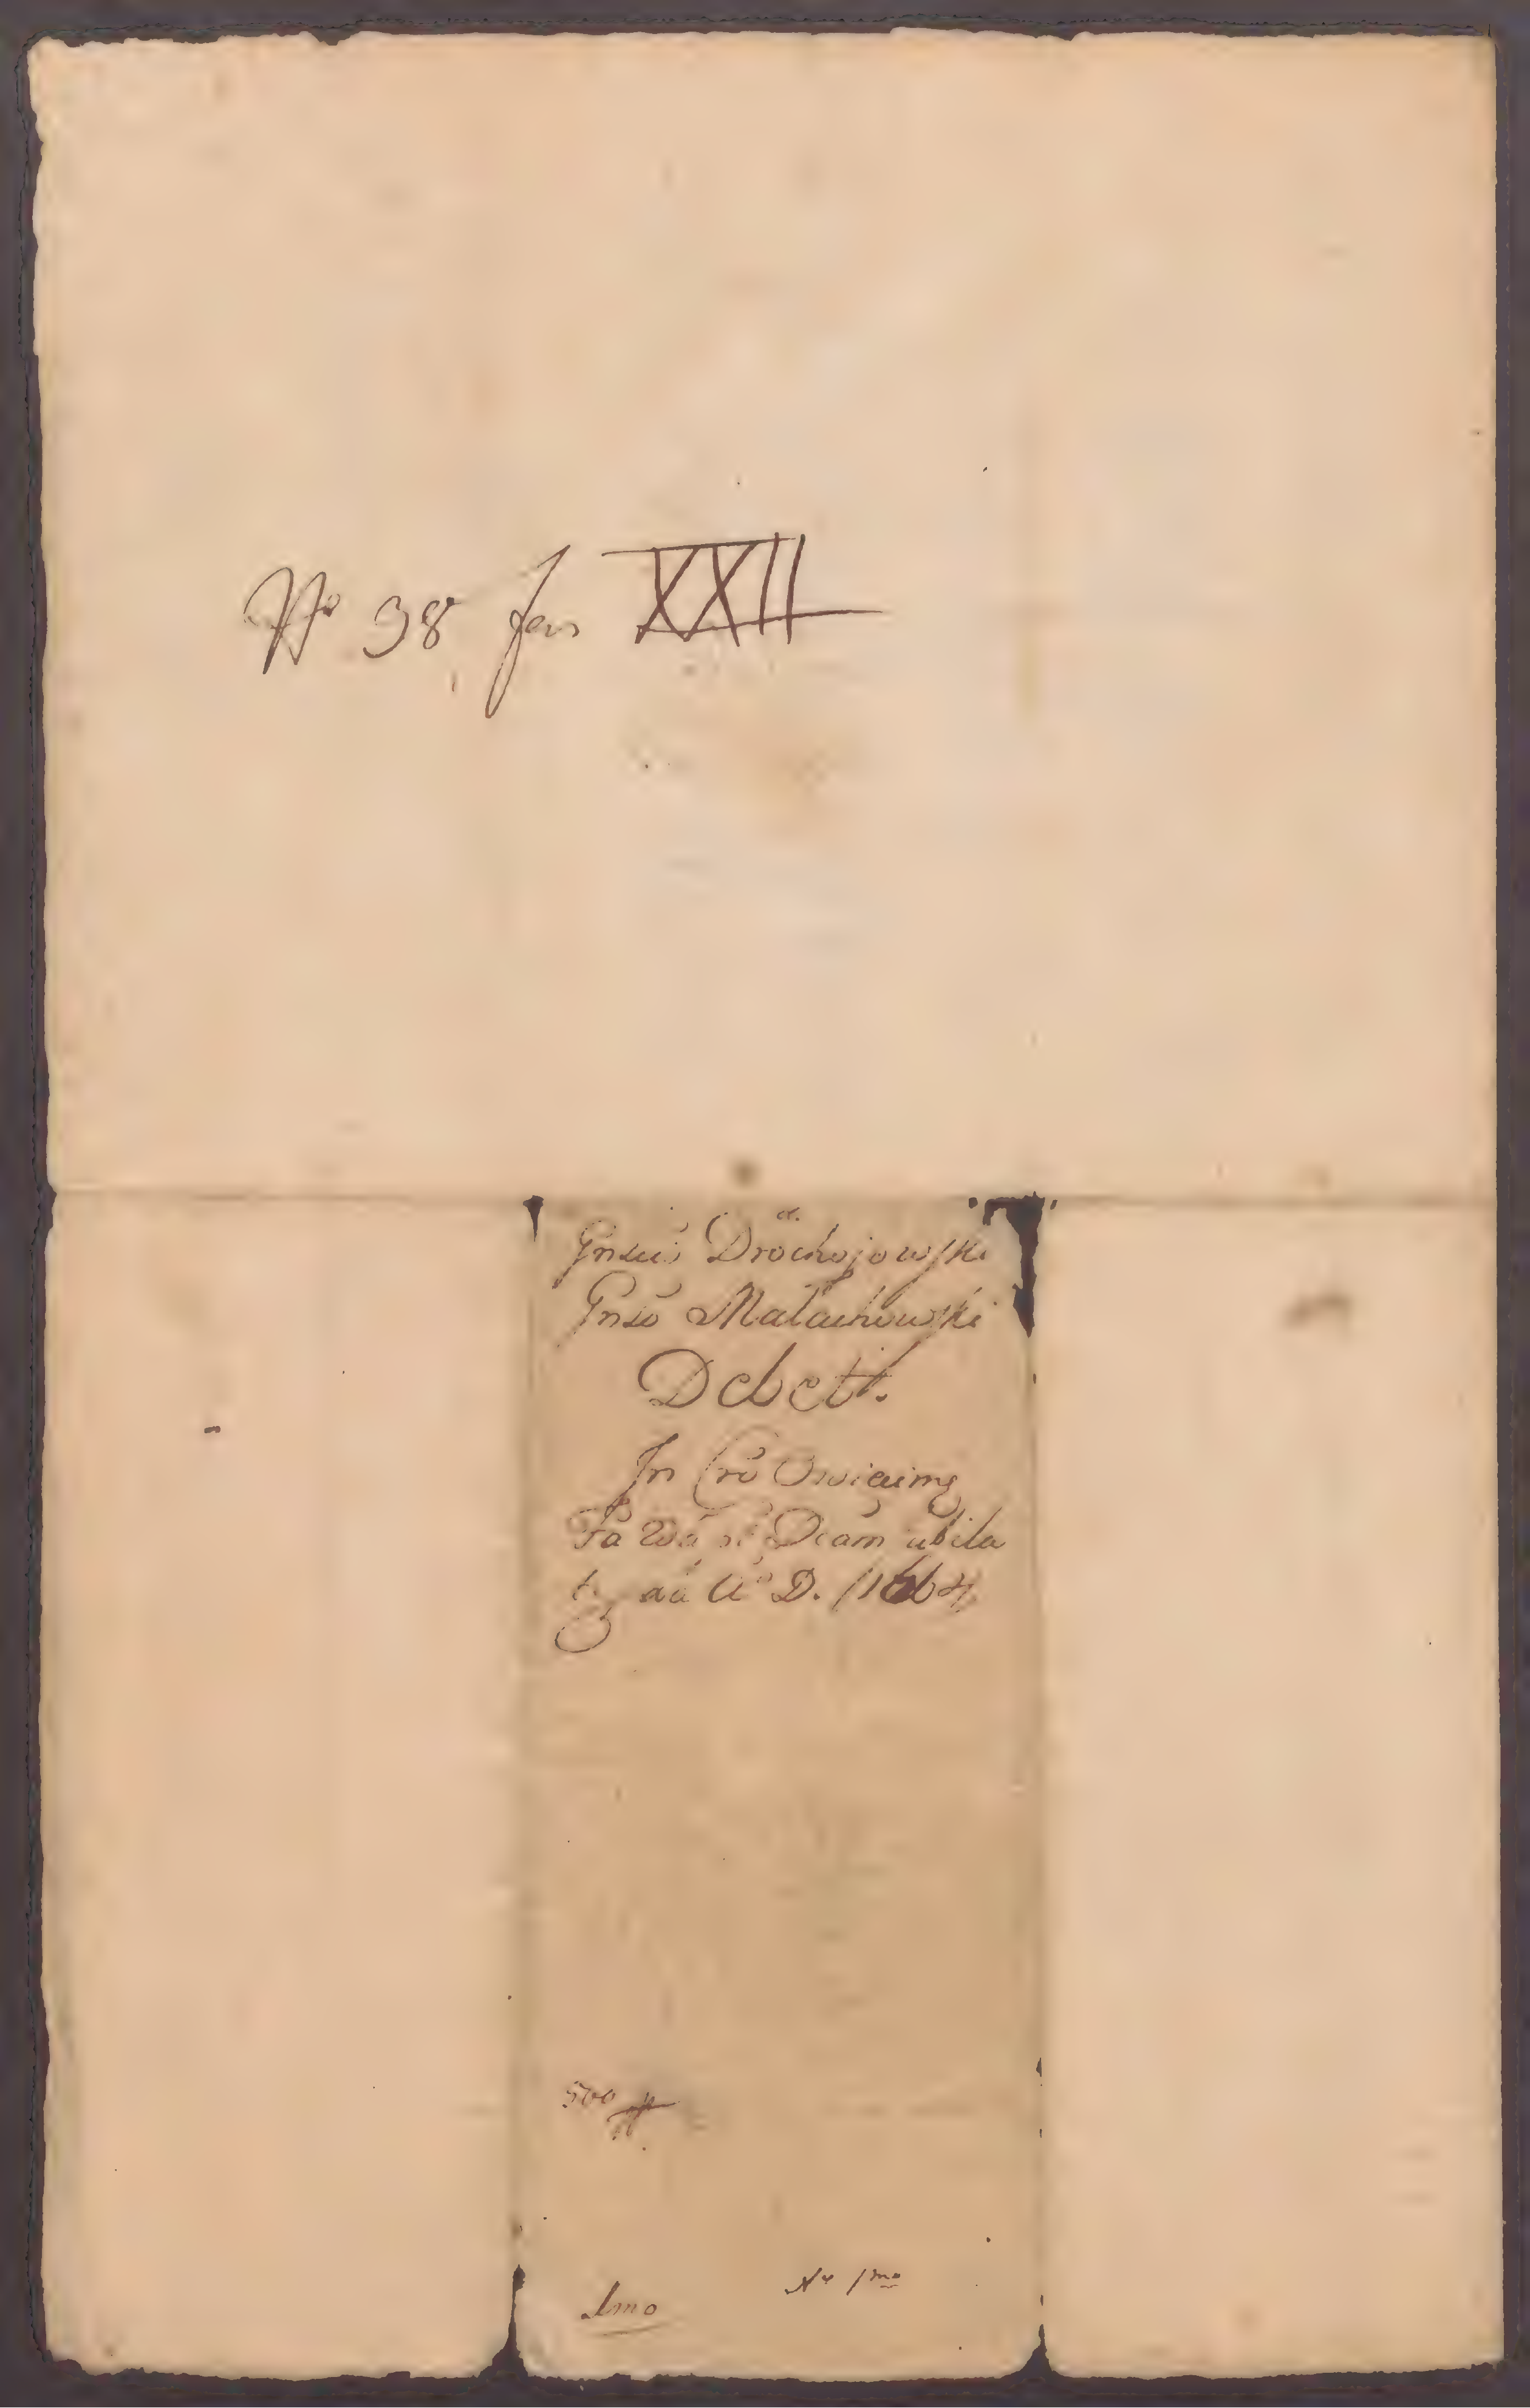 No 38 fas XXII
Gnsus Drochojowski
Gnso Malachowski
Debett.
In Cro Oswiecimg
Fa 2da p Dcam
aa Ao D. 1664
500
Imo
No 1mo